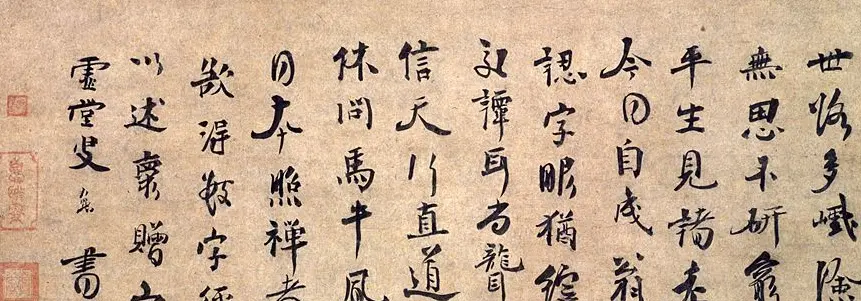 世路多巇嶮
無思不研窮
平生見諸老
今日自成翁
認字眼猶綻
交譚耳尚聾
信天行直道
休問馬牛風
日本照禪者
欲得數字徑
以述懷贈
虛堂叟書